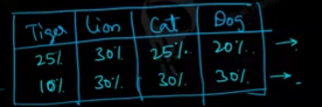 Tiger Lion Cat Dog
25% 30% 25% 20% →
10% 30% 30% 30% →